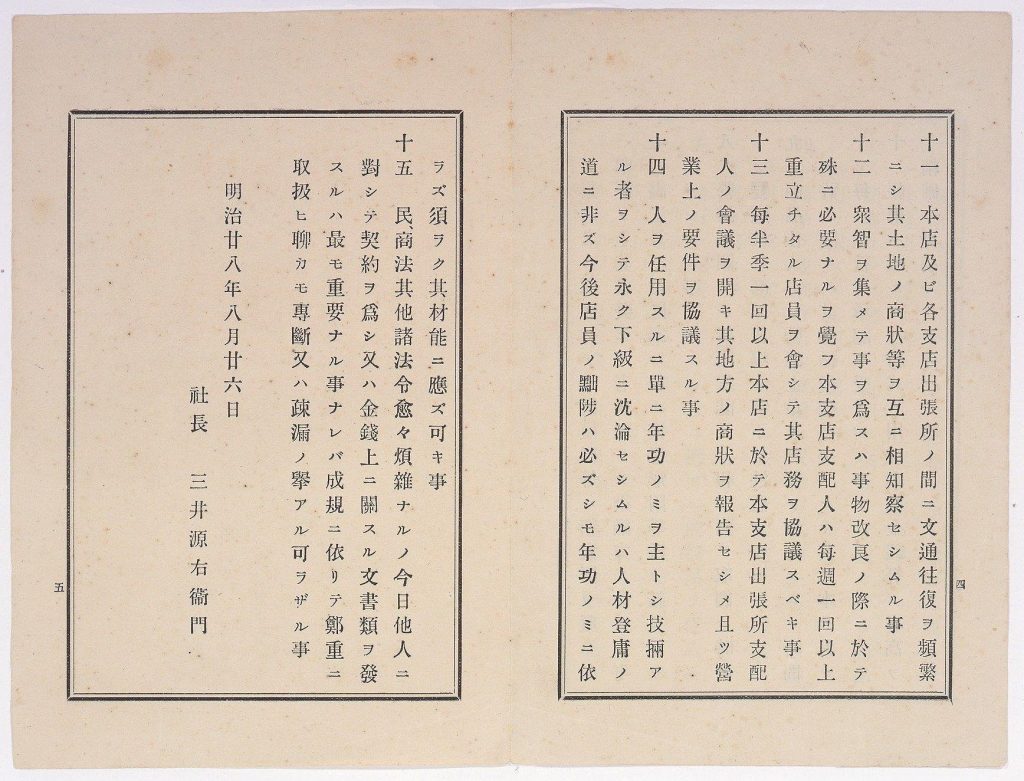 十一 本店及ビ各支店出張所ノ間ニ文通往復ヲ頻繁
ニシ其土地ノ商狀等ヲ互ニ相知察セシムル事
十二 衆智ヲ集メテ事ヲ爲スハ事物改良ノ際ニ於テ
殊ニ必要ナルヲ覺フ本支店支配人ハ每週一回以上
重立チタル店員ヲ會シテ其店務ヲ協議スベキ事
十三 每半季一回以上本店ニ於テ本支店出張所支配
人ノ會議ヲ開キ其地方ノ商狀ヲ報告セシメ且ツ營
業上ノ要件ヲ協議スル事
十四 人ヲ任用スルニ單ニ年功ノミヲ主トシ技倆ア
ル者ヲシテ永ク下級ニ沈淪セシムルハ人材登庸ノ
道ニ非ズ今後店員ノ黜陟ハ必ズシモ年功ノミニ依
四
ラズ須ヲク其材能ニ應ズ可キ事
十五 民、商法其他諸法令愈々煩雜ナルノ今日他人ニ
對シテ契約ヲ爲シ又ハ金錢上ニ關スル文書類ヲ發
スルハ最モ重要ナル事ナレバ成規ニ依リテ鄭重ニ
取扱ヒ聊カモ專斷又ハ疎漏ノ擧アル可ヲザル事
明治廿八年八月廿六日
社長 三井源右衞門
五